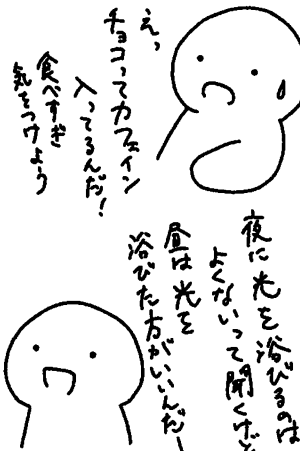 えっ
チョコってカフェイン
入ってるんだ!
食べすぎ
気をつけよう
夜に光を浴びるのは
よくないって聞くけど
昼は光を
浴びた方がいいんだー